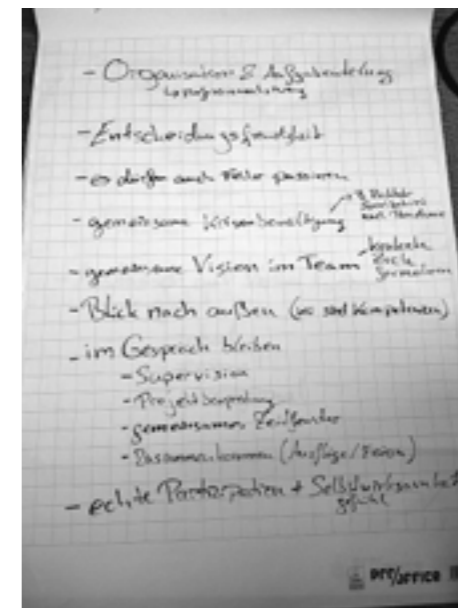 - Organisation & Aufgabenteilung
- Entscheidungsfreudigkeit
- es dürfen auch Fehler passieren
- gemeinsame Krisenbewältigung
- gemeinsame Vision im Team
- Blick nach außen (wo sind Kompetenzen)
- im Gespräch bleiben
- Supervision
- Projektbesprechung
- gemeinsames Zeitfenster
- Zusammenkommen (Ausflüge/Feiern)
- echte Partizipation + Selbstwirksamkeit
gefühl
office